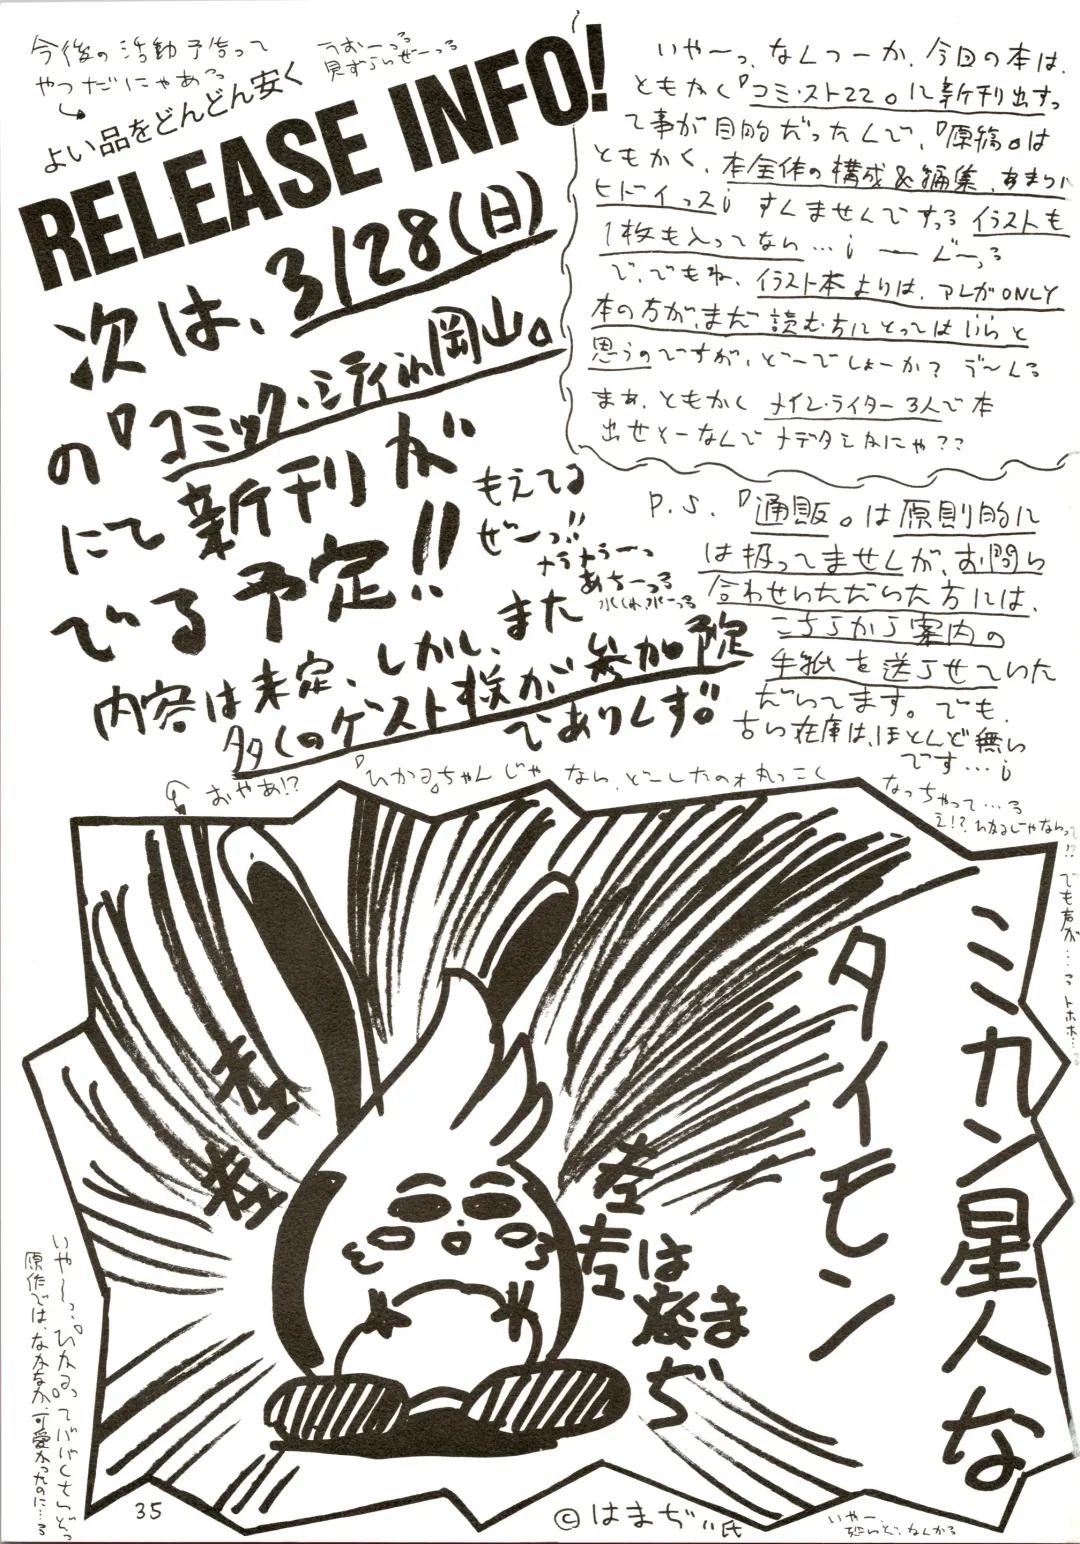 今後の活動予告って
やつだにゃあっ
うおーっ
よい品をどんどん安く
RELEASE INFO!
次は、3/28(日)
の『コミック・シティin岡山』
にて新刊が
でる予定!!
もえてる
ぜーっ!!
メラメラーっ
あちーっ
内容は未定、しかし、また
多くのゲスト様が参加予定
でありんす。
いやーっ、なんつーか、今回の本は、
ともかく『コミ・スト22』に新刊出すっ
て事が目的だったんで、『原稿』は
ともかく、本全体の構成&編集、あまりに
ヒドイっス すんませんですっ イラストも
1枚も入ってない…
で、でもね、イラスト本よりは、アレがONLY
本の方が、まだ読む方にとってはいいと
思うのですが、どーでしょーか?
まぁ、ともかく メイン・ライター3人で本
出せそーなんで メデタシかにゃ??
P.S.『通販』は原則的に
は扱ってませんが、お問い
合わせいただいた方には、
こちらから案内の
手紙を送らせていた
だいてます。でも、
古い在庫は、ほとんど無い
です…
なっちゃって…
え!?ひかるじゃないって
!?でも声が…
トホホ…
おやあ!?
『ひかる』ちゃんじゃない、どーしたのォ丸っこく
ミカン星人な
タイモン
はまぢ
いやーっ、『ひかる』って
原作では、なかなか、可愛かったのに…
35
©はまぢぃ氏
いやー、